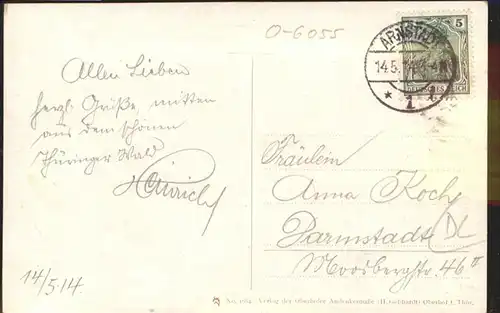 O-6055
ARNSTADT
14.5.14
1
5
DEUTSCHES REICH
Allen Lieben
herzl. Grüße, mitten
aus dem schönen
Thüringer Wald
Heinrich
14/5.14.
Fräulein
Anna Koch
Darmstadt
Moosbergstr. 46 II
DL
Verlag des Oberhofer Andenkenstudio Oberhof i. Thür.